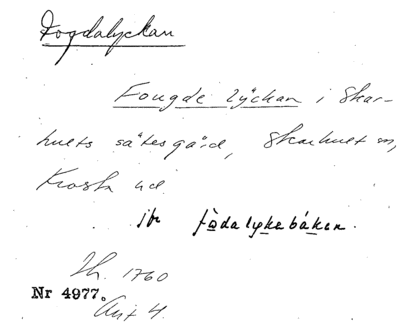 Fogdalyckan
Fougde lyckan i Skar-
hults sätesgård, Skarhult sn,
Frosta hd.
jfr fòdalykebáken.
Lh. 1760
Nr 4977.
Akt 4.